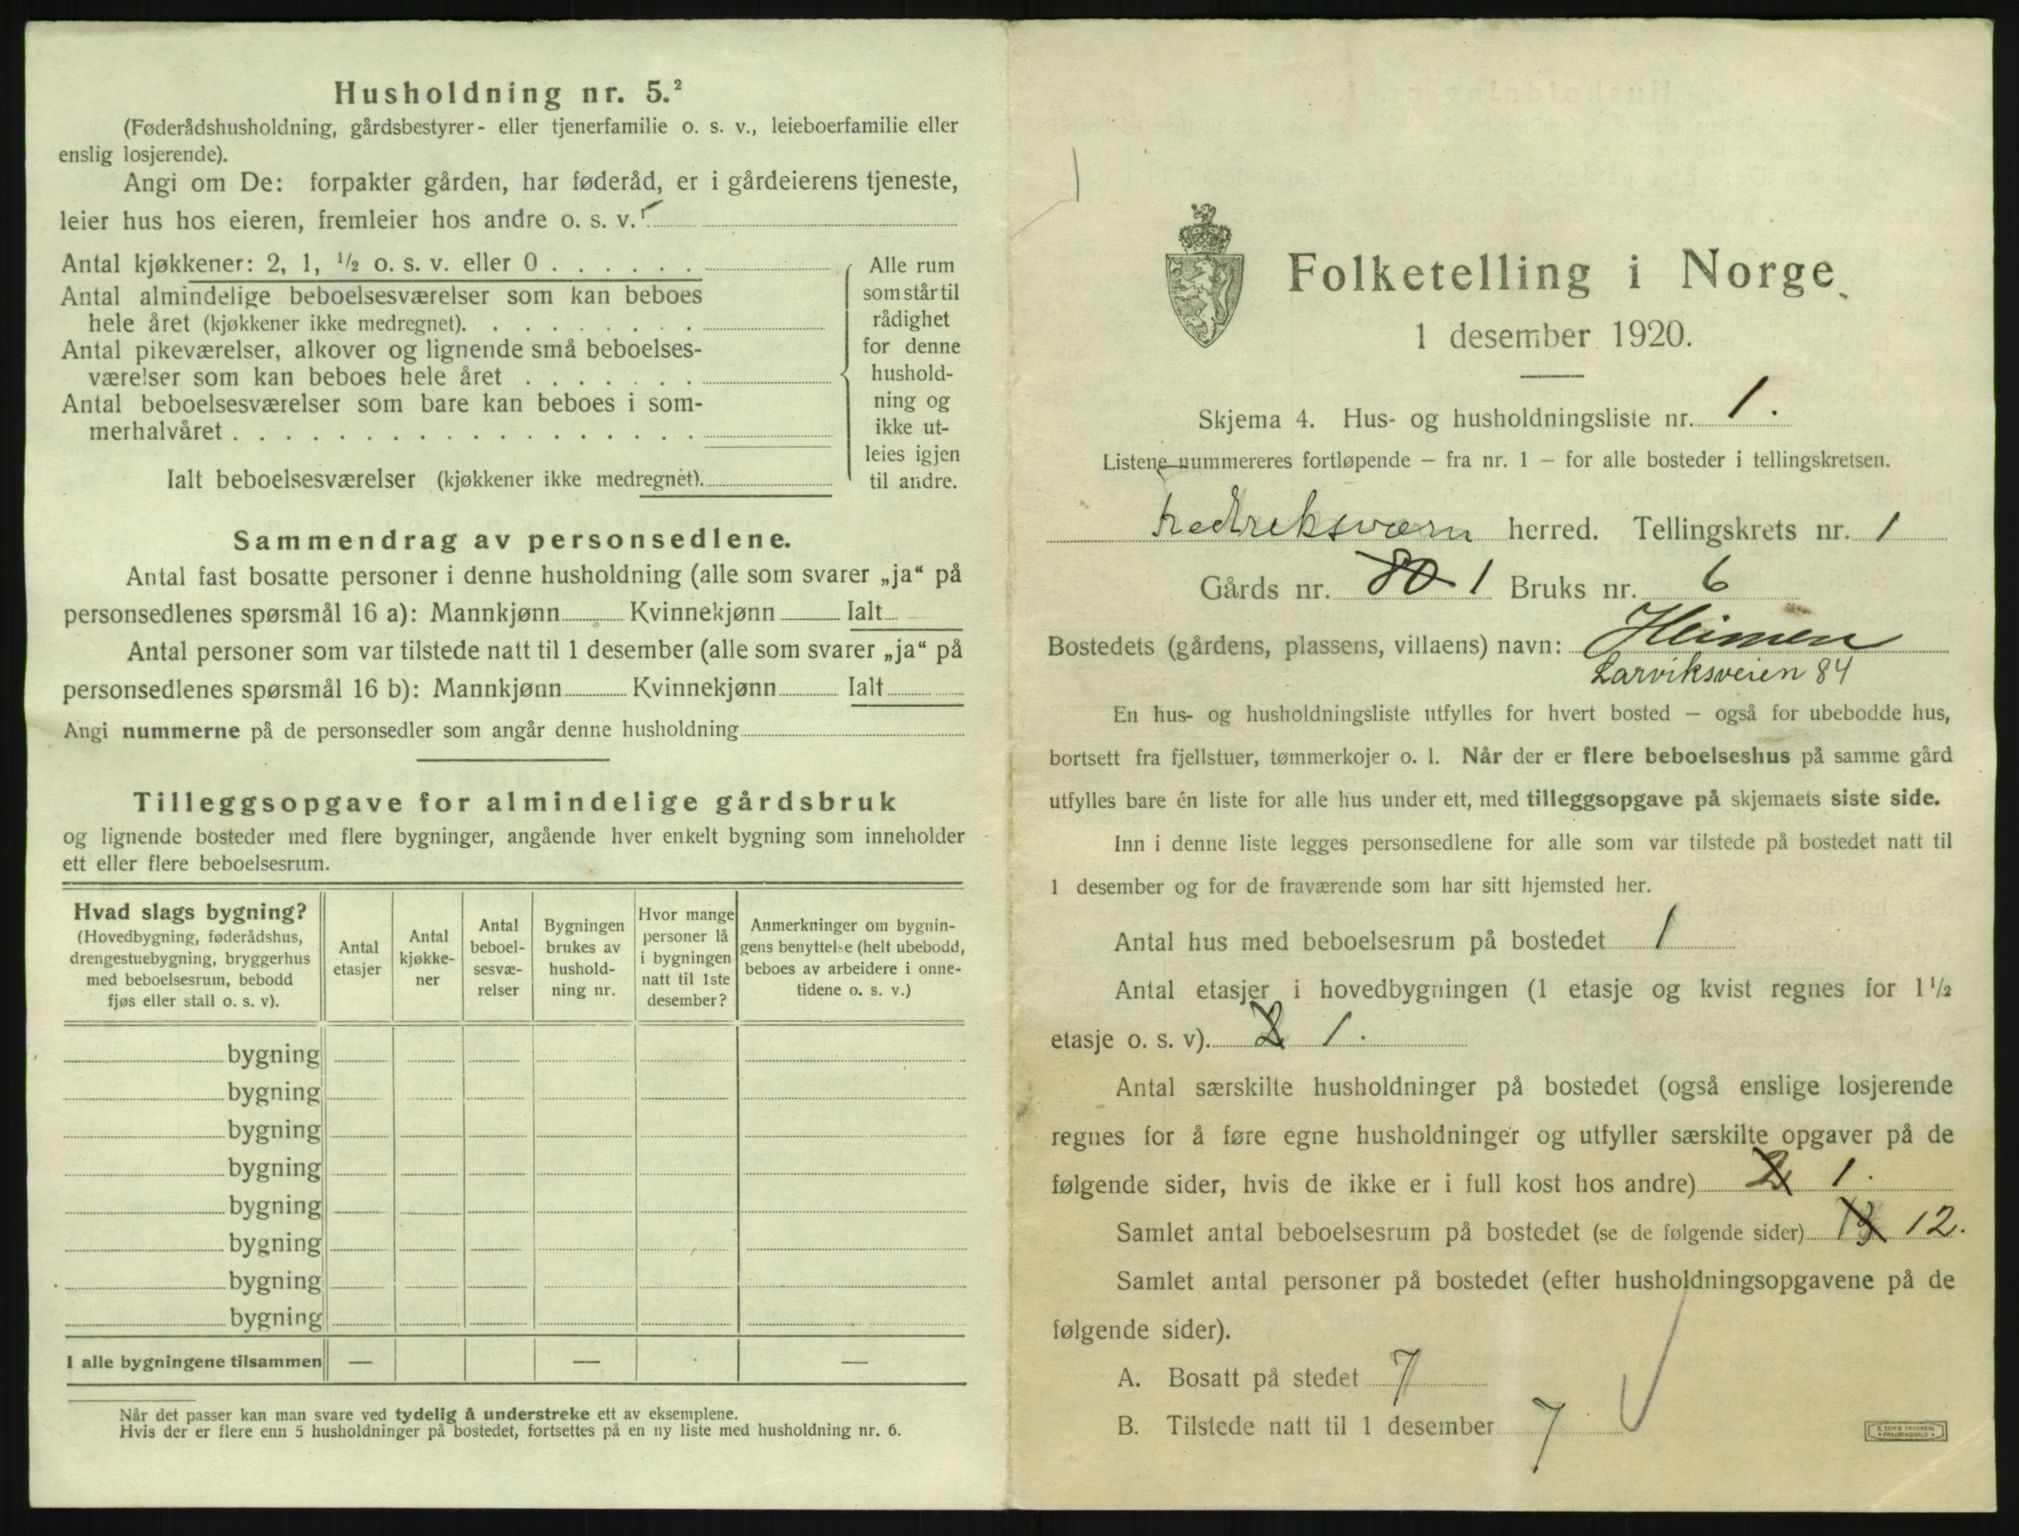 Husholdning nr. 5.²
(Føderådshusholdning, gårdsbestyrer- eller tjenerfamilie o. s. v., leieboerfamilie eller
enslig losjerende).
Angi om De: forpakter gården, har føderåd, er i gårdeierens tjeneste,
leier hus hos eieren, fremleier hos andre o. s. v.¹
Antal kjøkkener: 2, 1, ½ o. s. v. eller 0 . . . . . .
Antal almindelige beboelsesværelser som kan beboes
hele året (kjøkkener ikke medregnet). . . . . . . . .
Antal pikeværelser, alkover og lignende små beboelses-
værelser som kan beboes hele året . . . . . . .
Antal beboelsesværelser som bare kan beboes i som-
merhalvåret . . . . . . . . . . . . . . . . . .
Ialt beboelsesværelser (kjøkkener ikke medregnet).
Alle rum
som står til
rådighet
for denne
hushold-
ning og
ikke ut-
leies igjen
til andre.
Sammendrag av personsedlene.
Antal fast bosatte personer i denne husholdning (alle som svarer „ja“ på
personsedlenes spørsmål 16 a): Mannkjønn Kvinnekjønn Ialt
Antal personer som var tilstede natt til 1 desember (alle som svarer „ja“ på
personsedlenes spørsmål 16 b): Mannkjønn Kvinnekjønn Ialt
Angi nummerne på de personsedler som angår denne husholdning
Tilleggsopgave for almindelige gårdsbruk
og lignende bosteder med flere bygninger, angående hver enkelt bygning som inneholder
ett eller flere beboelsesrum.
Hvad slags bygning?
(Hovedbygning, føderådshus,
drengestuebygning, bryggerhus
med beboelsesrum, bebodd
fjøs eller stall o. s. v).
Antal
etasjer
Antal
kjøkke-
ner
Antal
beboel-
sesvæ-
relser
Bygningen
brukes av
hushold-
ning nr.
Hvor mange
personer lå
i bygningen
natt til 1ste
desember?
Anmerkninger om bygnin-
gens benyttelse (helt ubebodd,
beboes av arbeidere i onne-
tidene o. s. v.)
bygning
bygning
bygning
bygning
bygning
bygning
bygning
bygning
I alle bygningene tilsammen — — —
Når det passer kan man svare ved tydelig å understreke ett av eksemplene.
Hvis der er flere enn 5 husholdninger på bostedet, fortsettes på en ny liste med husholdning nr. 6.
Folketelling i Norge
1 desember 1920.
Skjema 4. Hus- og husholdningsliste nr. 1.
Listene nummereres fortløpende – fra nr. 1 – for alle bosteder i tellingskretsen.
Fredriksværn herred. Tellingskrets nr. 1
Gårds nr. 80 1 Bruks nr. 6
Bostedets (gårdens, plassens, villaens) navn: Heimen
Larviksveien 84
En hus- og husholdningsliste utfylles for hvert bosted – også for ubebodde hus,
bortsett fra fjellstuer, tømmerkojer o. l. Når der er flere beboelseshus på samme gård
utfylles bare én liste for alle hus under ett, med tilleggsopgave på skjemaets siste side.
Inn i denne liste legges personsedlene for alle som var tilstede på bostedet natt til
1 desember og for de fraværende som har sitt hjemsted her.
Antal hus med beboelsesrum på bostedet 1
Antal etasjer i hovedbygningen (1 etasje og kvist regnes for 1½
etasje o. s. v). 2 1.
Antal særskilte husholdninger på bostedet (også enslige losjerende
regnes for å føre egne husholdninger og utfyller særskilte opgaver på de
følgende sider, hvis de ikke er i full kost hos andre) 2 1.
Samlet antal beboelsesrum på bostedet (se de følgende sider) 13 12.
Samlet antal personer på bostedet (efter husholdningsopgavene på de
følgende sider).
A. Bosatt på stedet 7
B. Tilstede natt til 1 desember 7